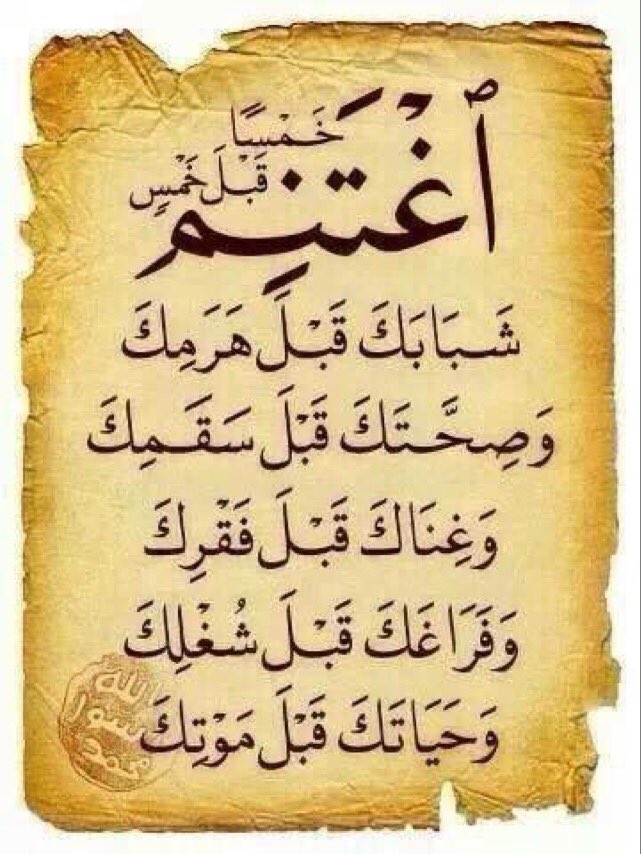 ٱغْتَنِمْ خَمْسًا
قَبْلَ خَمْسٍ
شَبَابَكَ قَبْلَ هَرَمِكَ
وَصِحَّتَكَ قَبْلَ سَقَمِكَ
وَغِنَاكَ قَبْلَ فَقْرِكَ
وَفَرَاغَكَ قَبْلَ شُغْلِكَ
وَحَيَاتَكَ قَبْلَ مَوْتِكَ
الله
رسول
محمد